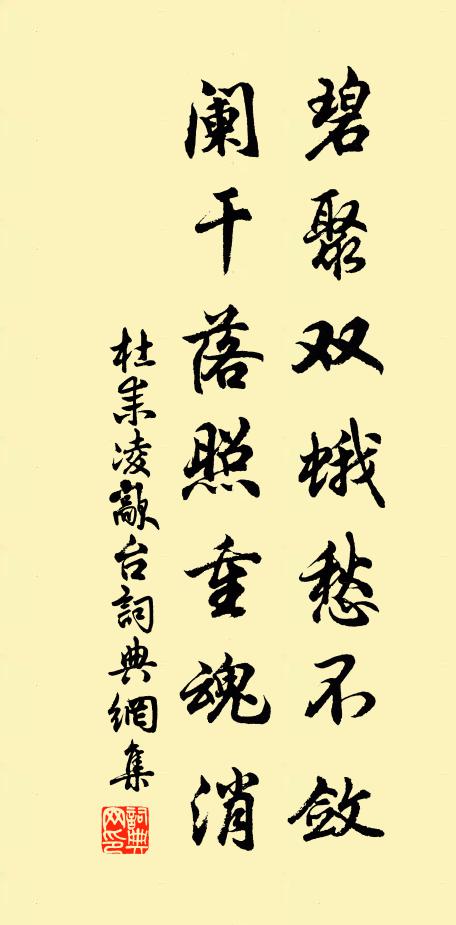 碧聚双蛾愁不敛
阑干落照重魂消
杜耒凌歊台詞典網集
詞典网印